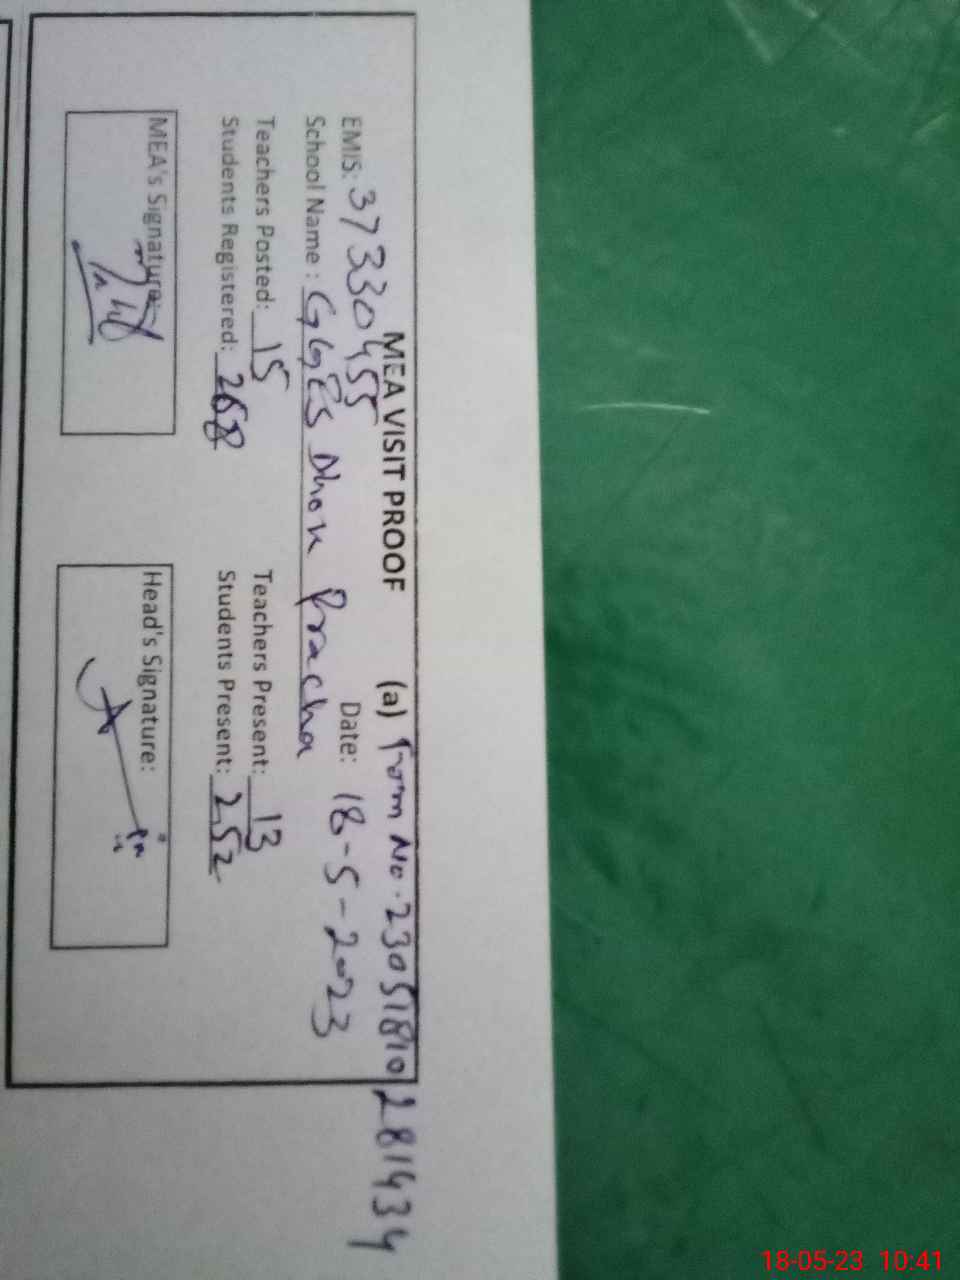 MEA VISIT PROOF (a) Form No. 23051810281434
EMIS: 37330455 Date: 18-5-2023
School Name : GGES Dhok Pracha
Teachers Posted: 15 Teachers Present: 13
Students Registered: 268 Students Present: 252
MEA's Signature: Head's Signature:
18-05-23 10:41